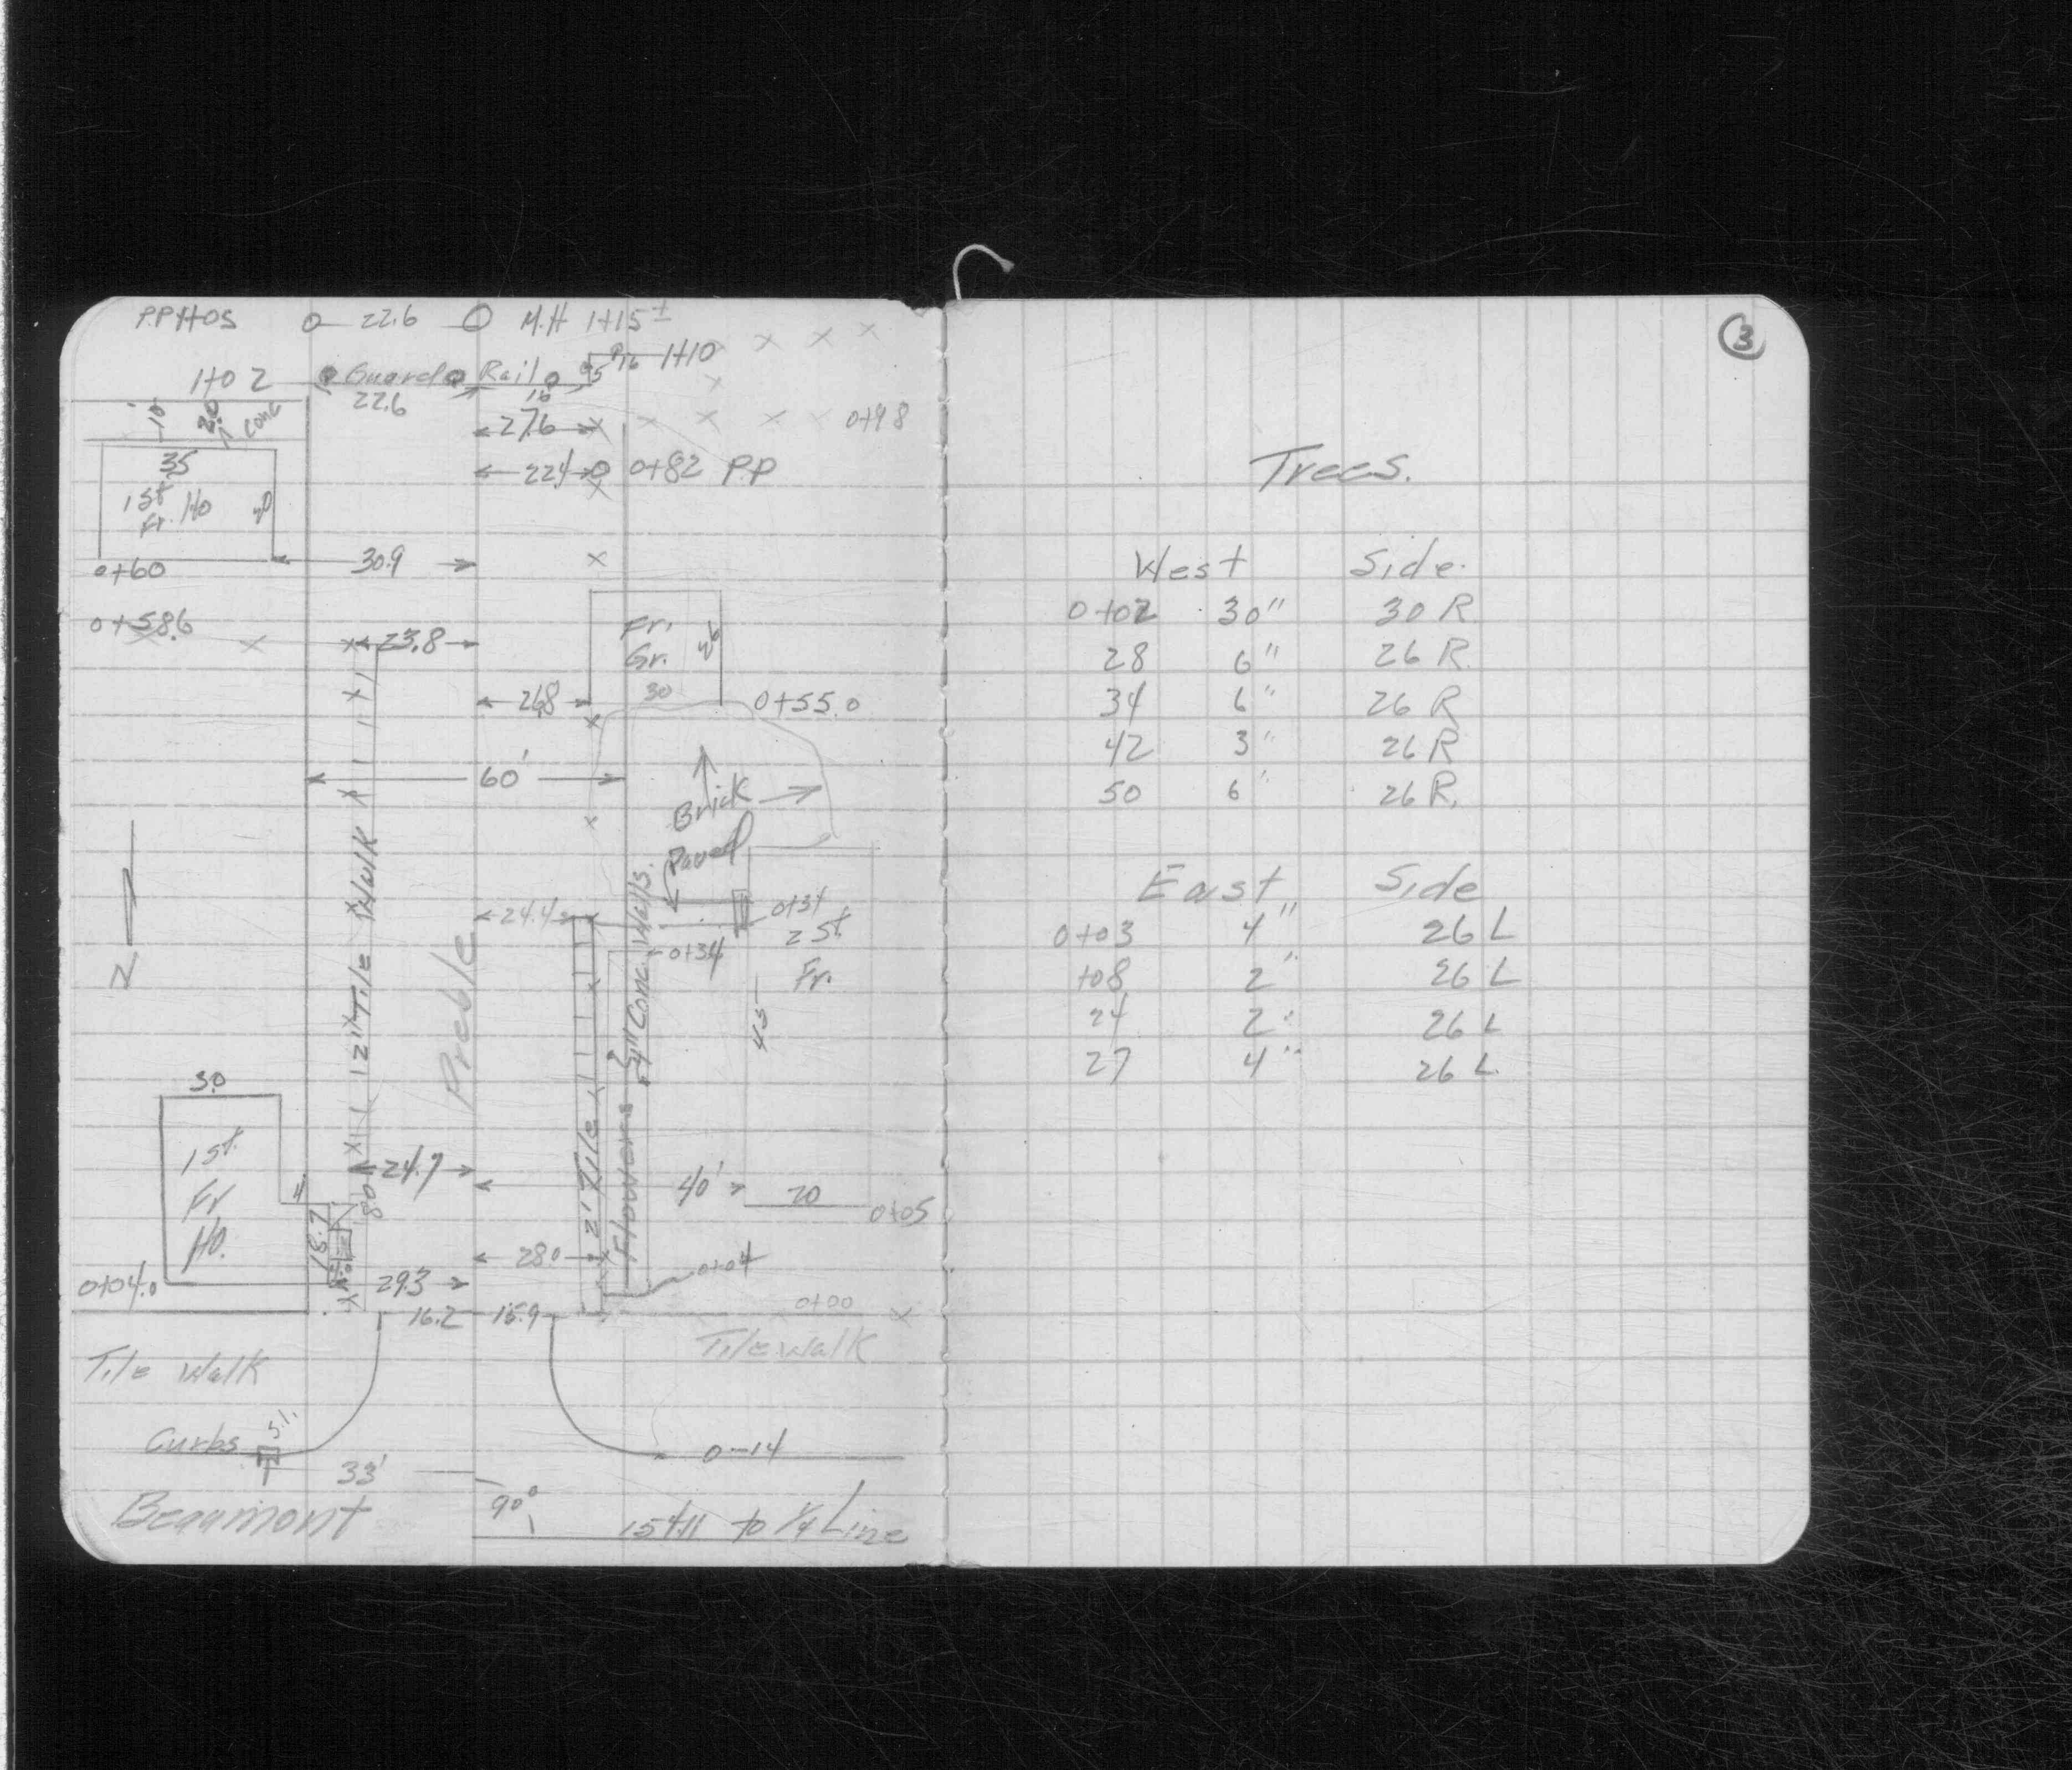 P.P 1+05 22.6 M.H 1+15±
1+10
1+02 Guard Rail
22.6 16
10 20 Conc
27.6
0+98
22.4 0+82 P.P
35
1 St
Fr. Ho
0+60 30.9
0+58.6
23.8
Fr.
Gr.
30
26.8 0+55.0
60'
Brick
Paved
12" Tile Walk
Preble
24.4 0+34
2 St.
Fr.
0+34
45
N
30
1 St.
Fr
Ho.
24.7
40' 20
0+05
18.7
28.0
0+04
0+04.0 29.3
0+00
16.2 15.9
2' Tile
Flowers
Conc. Walls.
Tile Walk
Tile Walk
Curbs
0-14
33'
90°
Beaumont 15+11 to 1/4 Line
3
Trees.
West Side.
0+02 30" 30 R
28 6" 26 R.
34 6" 26 R
42 3" 26 R
50 6" 26 R.
East Side
0+03 4" 26 L
+08 2" 26 L
24 2" 26 L
27 4" 26 L.